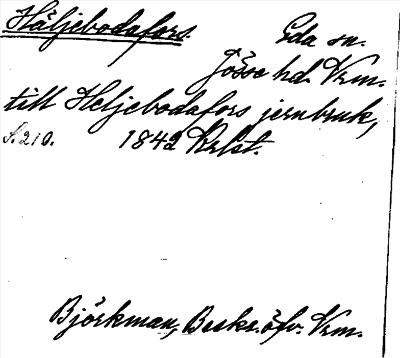 Häljebodafors. Eda sn.
Jösse hd. Vrm.
till Heljebodafors jernbruk,
S. 210. 1842 Krlst.
Björkman, Beskr. öfv. Vrm.